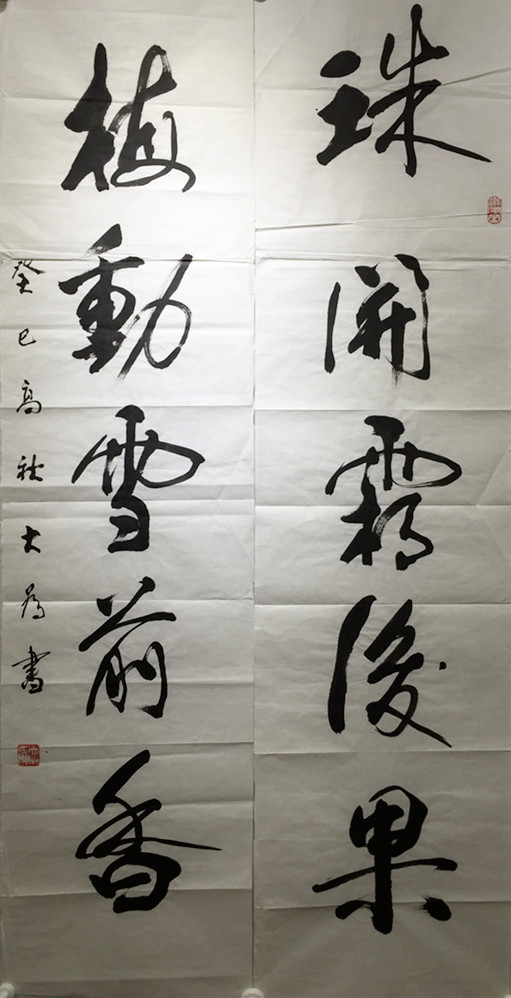 珠開霜後果
梅動雪前香
癸巳高秋大為書